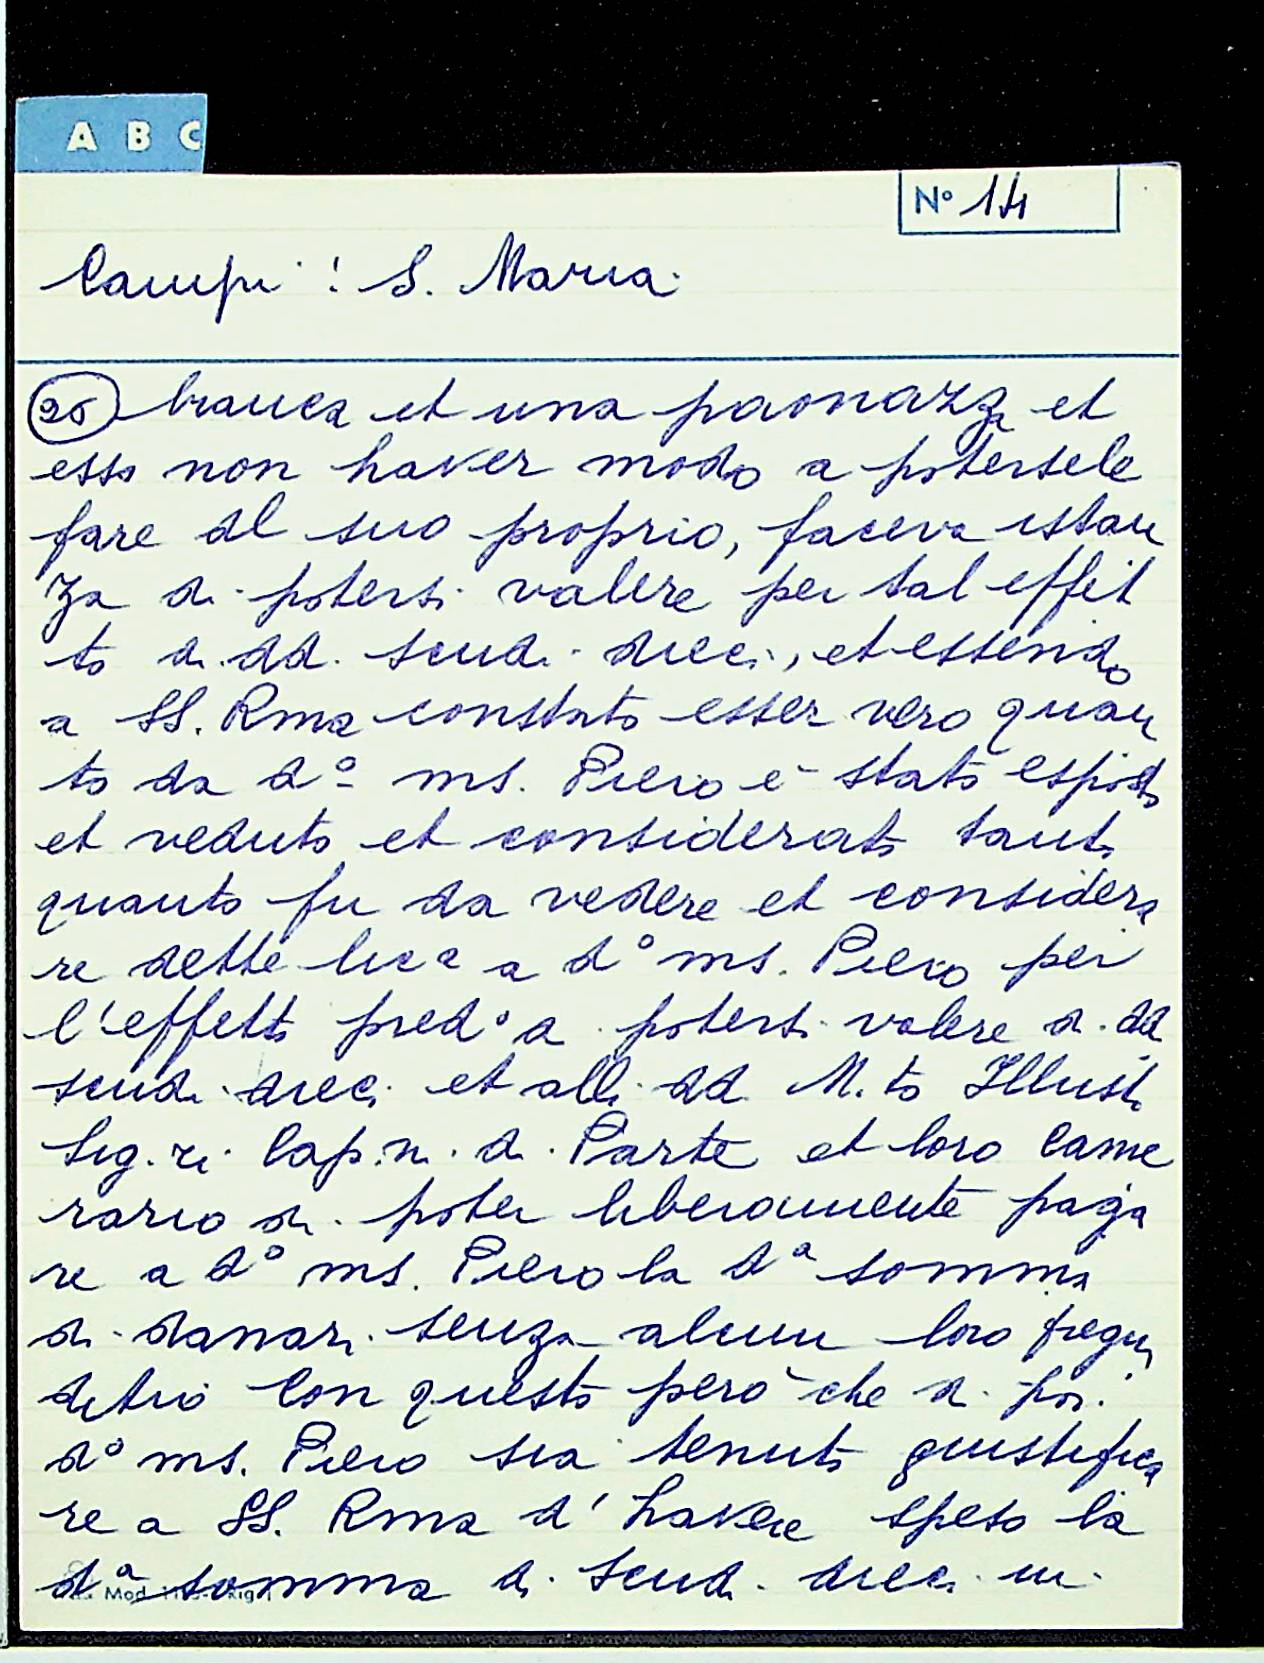 A B C
Nº 14
Campi: S. Maria
26 bianca et una paonazza et
esso non haver modo a potersele
fare del suo proprio, faceva istan
za di potersi valere per tal effet
to di dd. scudi dieci, et essendo
a SS. Rma constato esser vero quan
to da dº ms. Piero è stato esposto
et veduto et considerato tanto
quanto fu da vedere et considera
re dette licª a dº ms. Piero per
l'effetto predº a potersi valere di dd
scudi dieci et alli dd M.to Illust.
Sig.ri Cap.ni di Parte et loro Came
rario di poter liberamente paga
re a dº ms. Piero la dª somma
di danari senza alcun loro pregiu
ditio con questo però che di poi
dº ms. Piero sia tenuto giustifica
re a SS. Rma d'havere speso la
dª somma di scudi dieci in